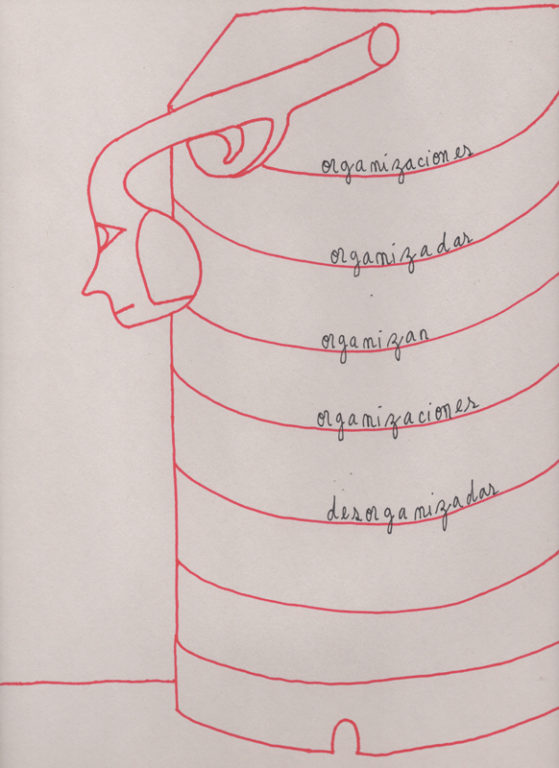 organizaciones
organizadas
organizan
organizaciones
desorganizadas